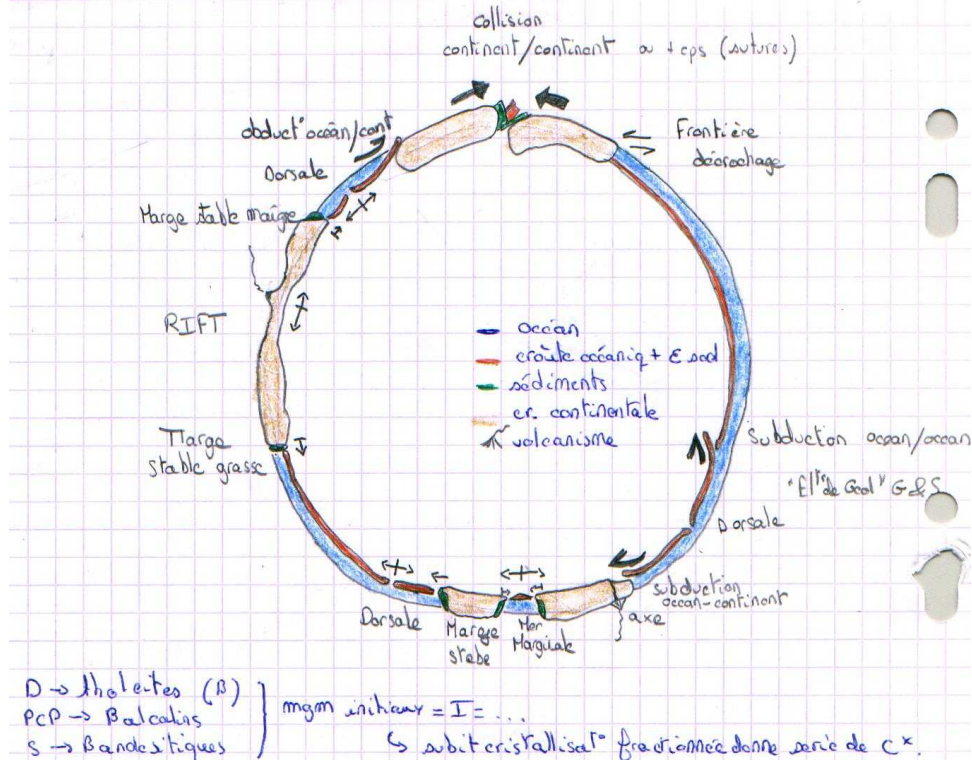 collision
continent/continent ou + cps (sutures)
obduct° océan/cont
Dorsale
Frontière
décrochage
Marge stable maigre
RIFT
océan
croûte océaniq + E sed
sédiments
cr. continentale
volcanisme
Marge
stable grasse
Subduction ocean/ocean
"Elts de Geol" G & S
Dorsale
subduction
ocean-continent
axe
Dorsale
Marge
stable
Mer
Marginale
D → tholeites (B)
PCP → B alcalins
S → B andesitiques
mgm initiaux = I = ...
↳ subit cristallisat° fractionnée donne serie de C*.